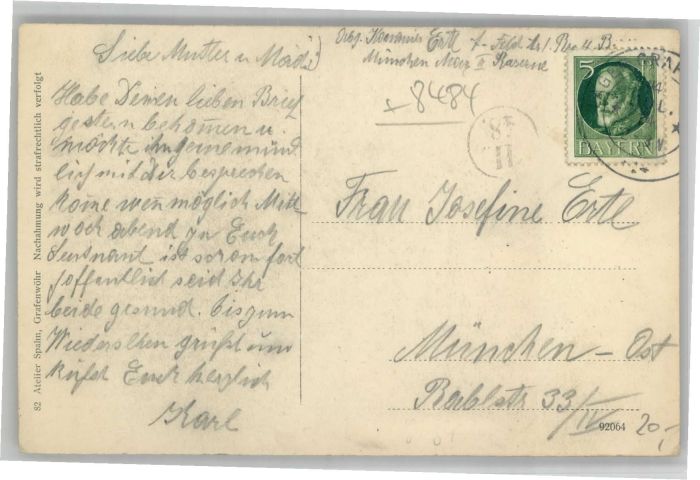 Liebe Mutter u
Habe Deinen lieben Brief
gestern bekom̅en u.
möchte im gerne münd
lich mit Dir besprechen
kom̅e wen möglich Mitt
woch abend zu Euch
ist schon fort
hoffentlich seid Ihr
beide gesund. bis zum
Wiedersehen grüßt und
küßt Euch herzlich
Karl
Ertl
München
8484
5
BAYERN
GRAF
Frau Josefine Ertl
München - Ost
33/IV
92064
20,-
82 Atelier Spahn, Grafenwöhr Nachahmung wird strafrechtlich verfolgt